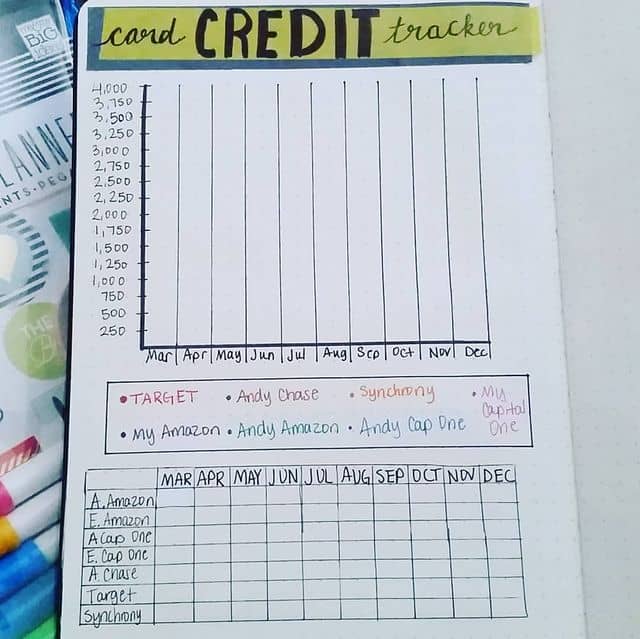 card CREDIT tracker
4,000
3,750
3,500
3,250
3,000
2,750
2,500
2,250
2,000
1,750
1,500
1,250
1,000
750
500
250
Mar Apr May Jun Jul Aug Sep Oct Nov Dec
• TARGET • Andy Chase • Synchrony • My Capital One
• My Amazon • Andy Amazon • Andy Cap One
MAR APR MAY JUN JUL AUG SEP OCT NOV DEC
A. Amazon
E. Amazon
A Cap One
E. Cap One
A. Chase
Target
Synchrony
BIG
THE